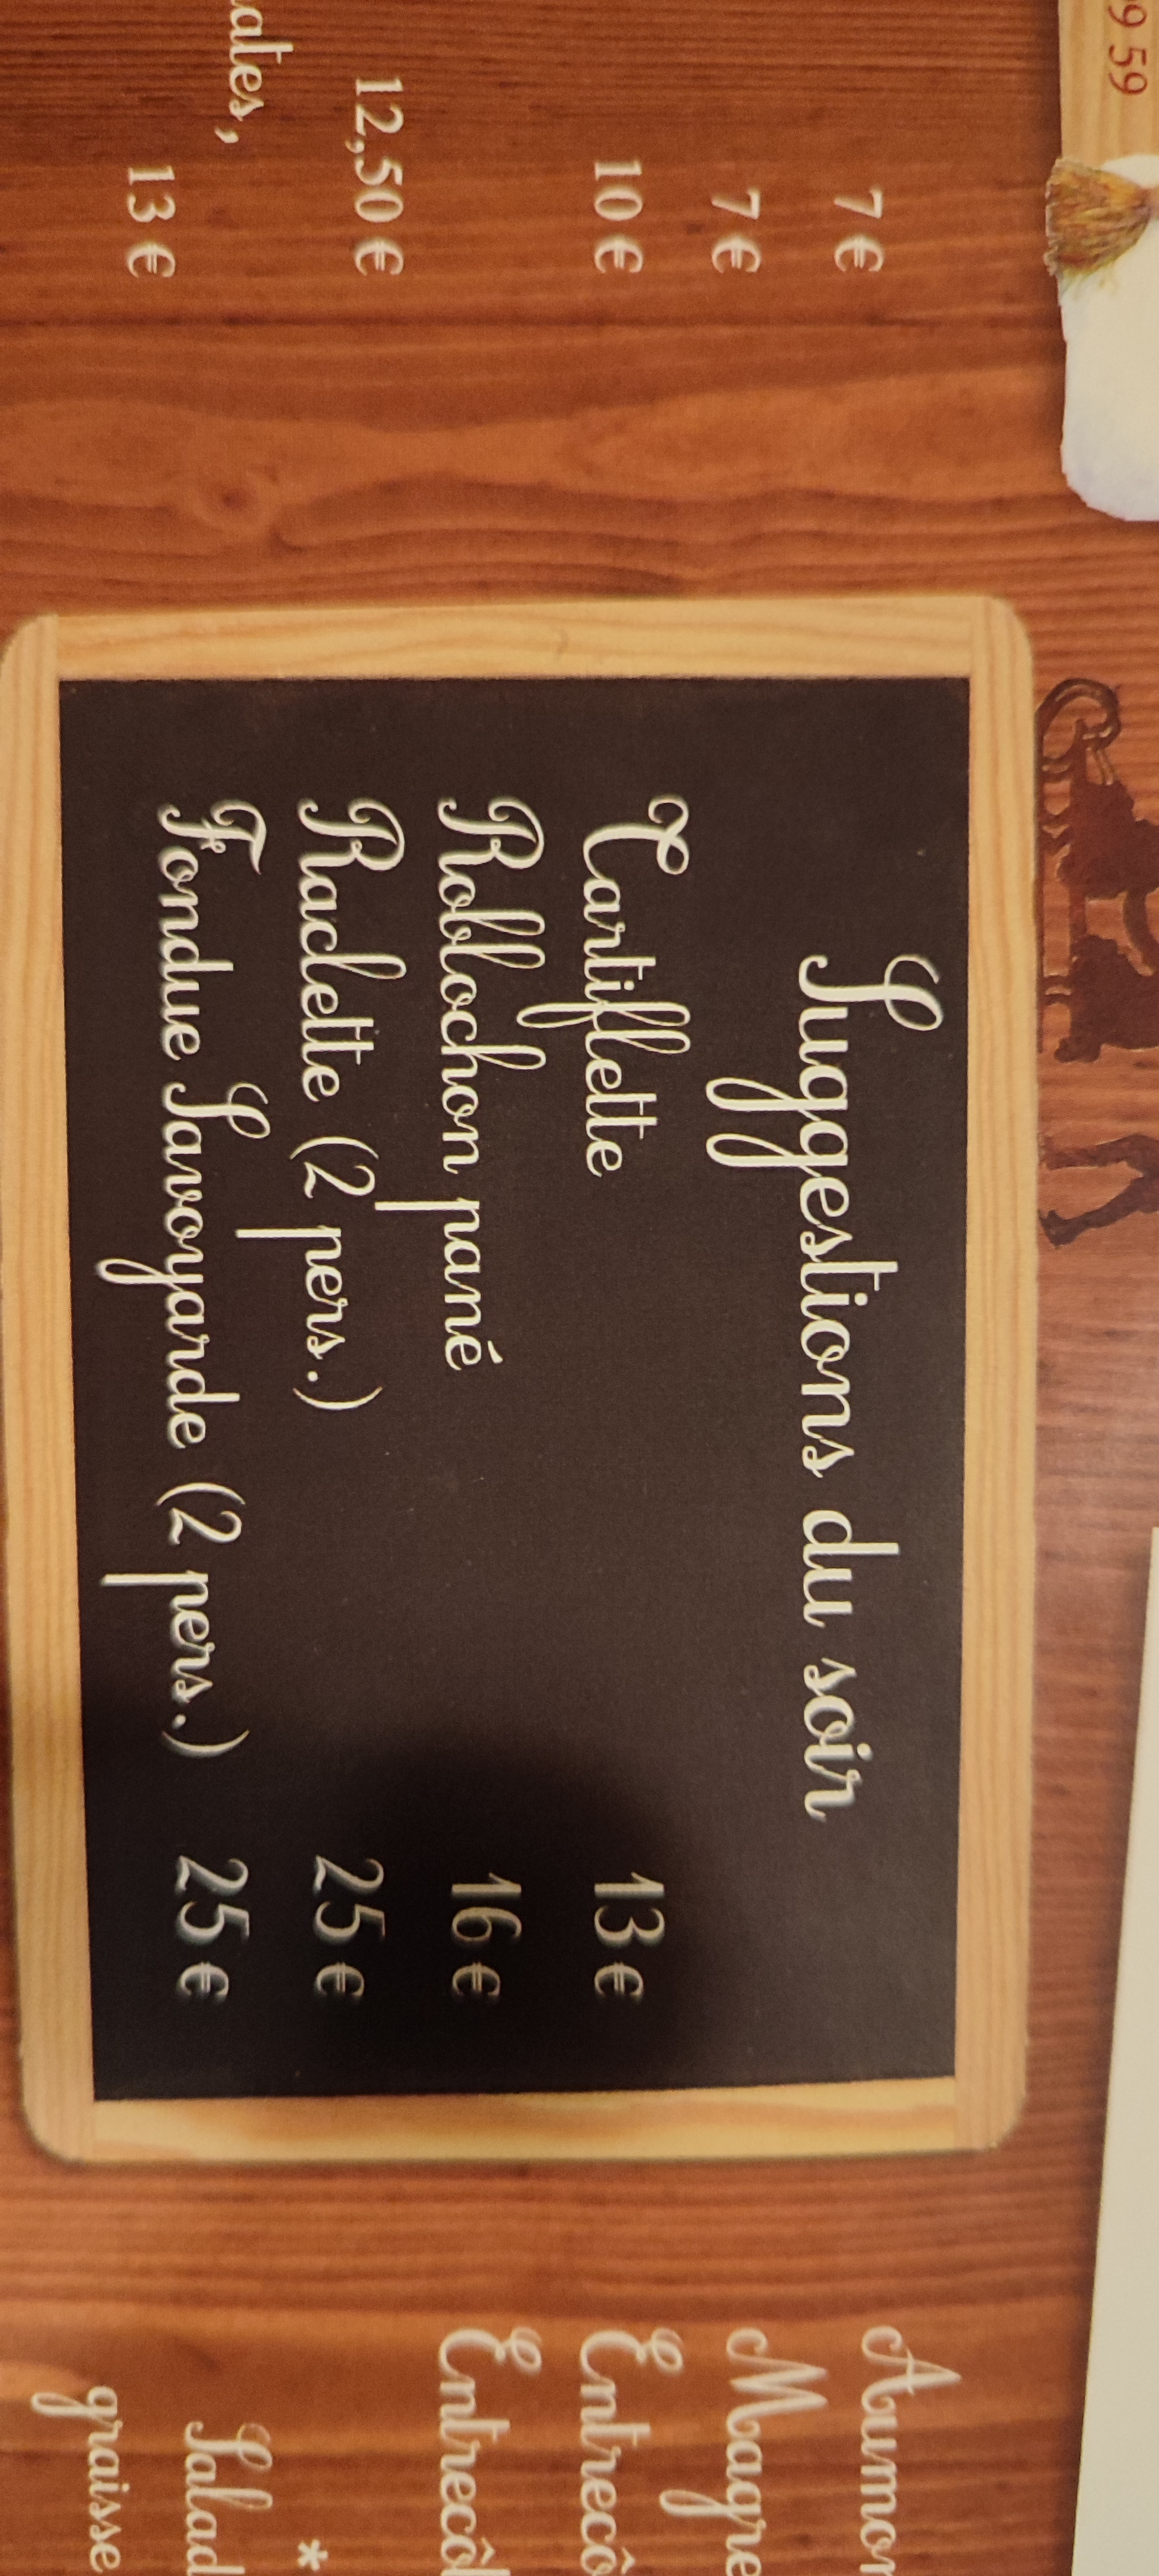 9 59
7 €
7 €
10 €
12,50 €
ates,
13 €
Suggestions du soir
Tartiflette 13 €
Roblochon pané 16 €
Raclette (2 pers.) 25 €
Fondue Savoyarde (2 pers.) 25 €
Aumon
Magre
Entrecô
Entrecôt
*
Salad
graisse